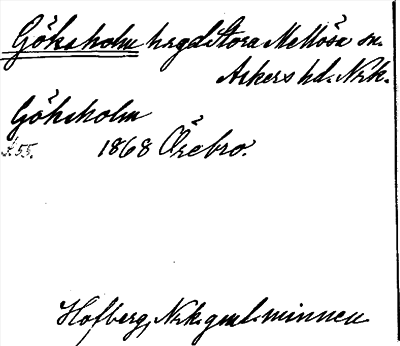 Göksholm hrgd. Stora Mellösa sn.
Askers hd. Nrk.
Göksholm
s. 55. 1868 Örebro.
Hofberg, Nrk. gml. minnen